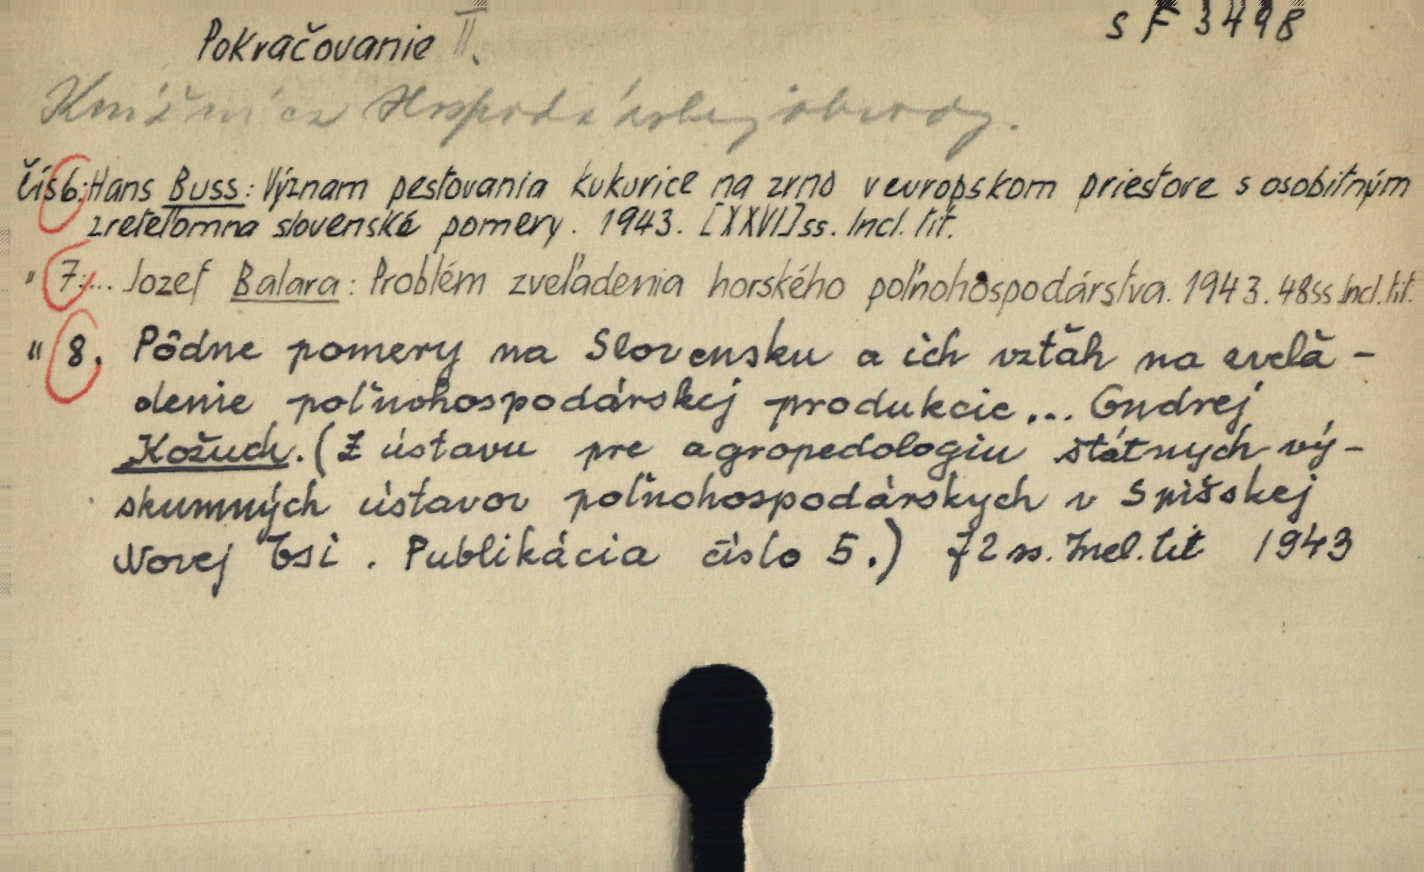 Pokračovanie II.
s F 3498
Knižnica Hospodárskej obrody.
Čís 6: Hans Buss: Význam pestovania kukurice na zrno v europskom priestore s osobitným
zreteľom na slovenské pomery. 1943. [XXVI] ss. Incl. tit.
" 7:... Jozef Balara: Problém zveľadenia horského poľnohospodárstva. 1943. 48 ss Incl. tit.
" 8. Pôdne pomery na Slovensku a ich vzťah na zvelá-
denie poľnohospodárskej produkcie... Ondrej
Kožuch. (Z ústavu pre agropedologiu štátnych vý-
skumných ústavov poľnohospodárskych v Spišskej
Novej Vsi. Publikácia číslo 5.) 72 ss. Incl. tit 1943